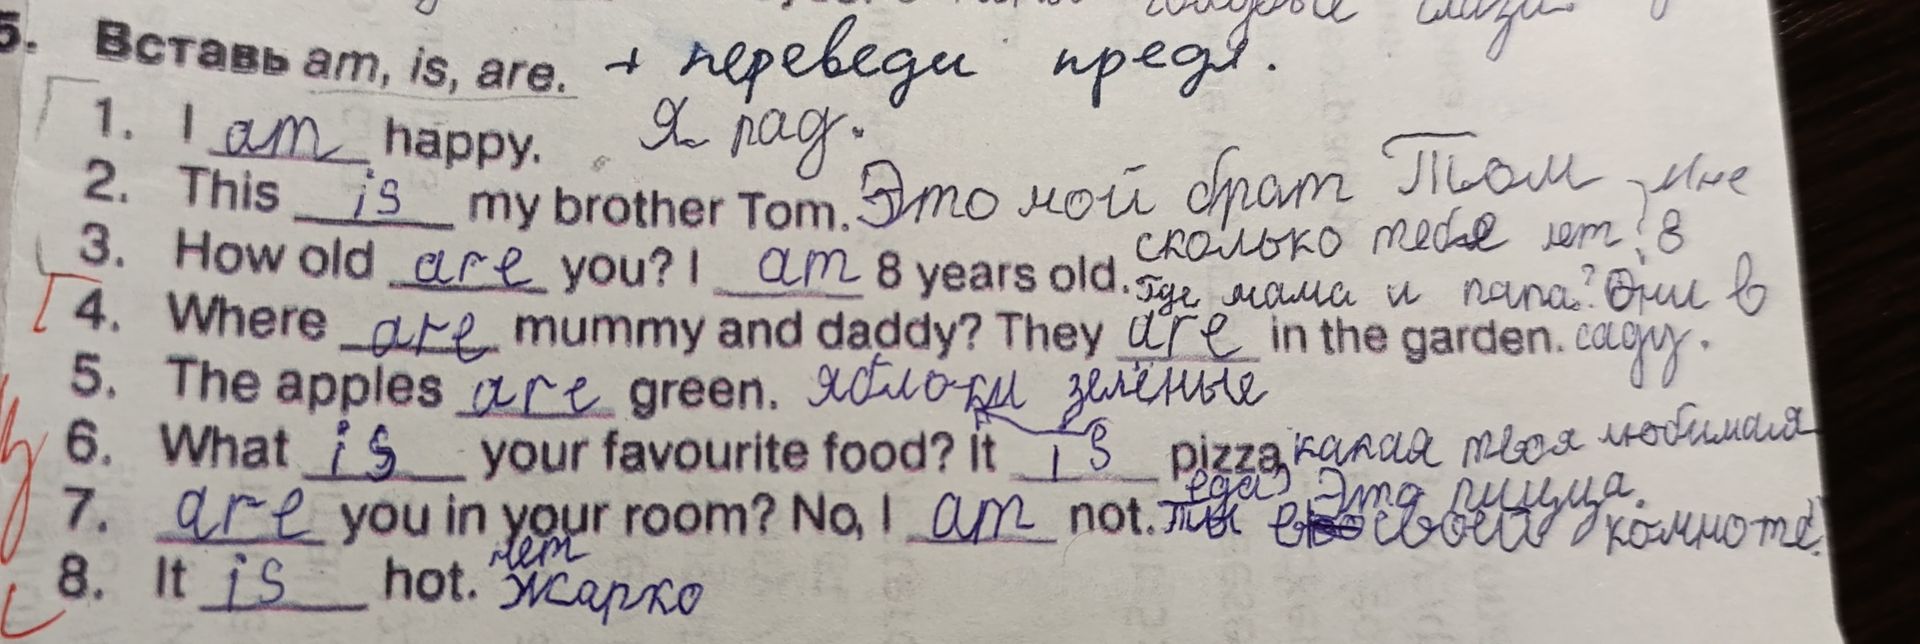 голубые глаза.
5. Вставь am, is, are. + переведи предл.
1. I am happy. Я рад.
2. This is my brother Tom. Это мой брат Том, мне
3. How old are you? I am 8 years old. сколько тебе лет? 8
4. Where are mummy and daddy? They are in the garden. Где мама и папа? Они в саду.
5. The apples are green. яблоки зелёные
6. What is your favourite food? It is pizza, какая твоя любимая еда? Это пицца.
7. are you in your room? No, I am not. ты в своей комноте?
нет
8. It is hot. Жарко